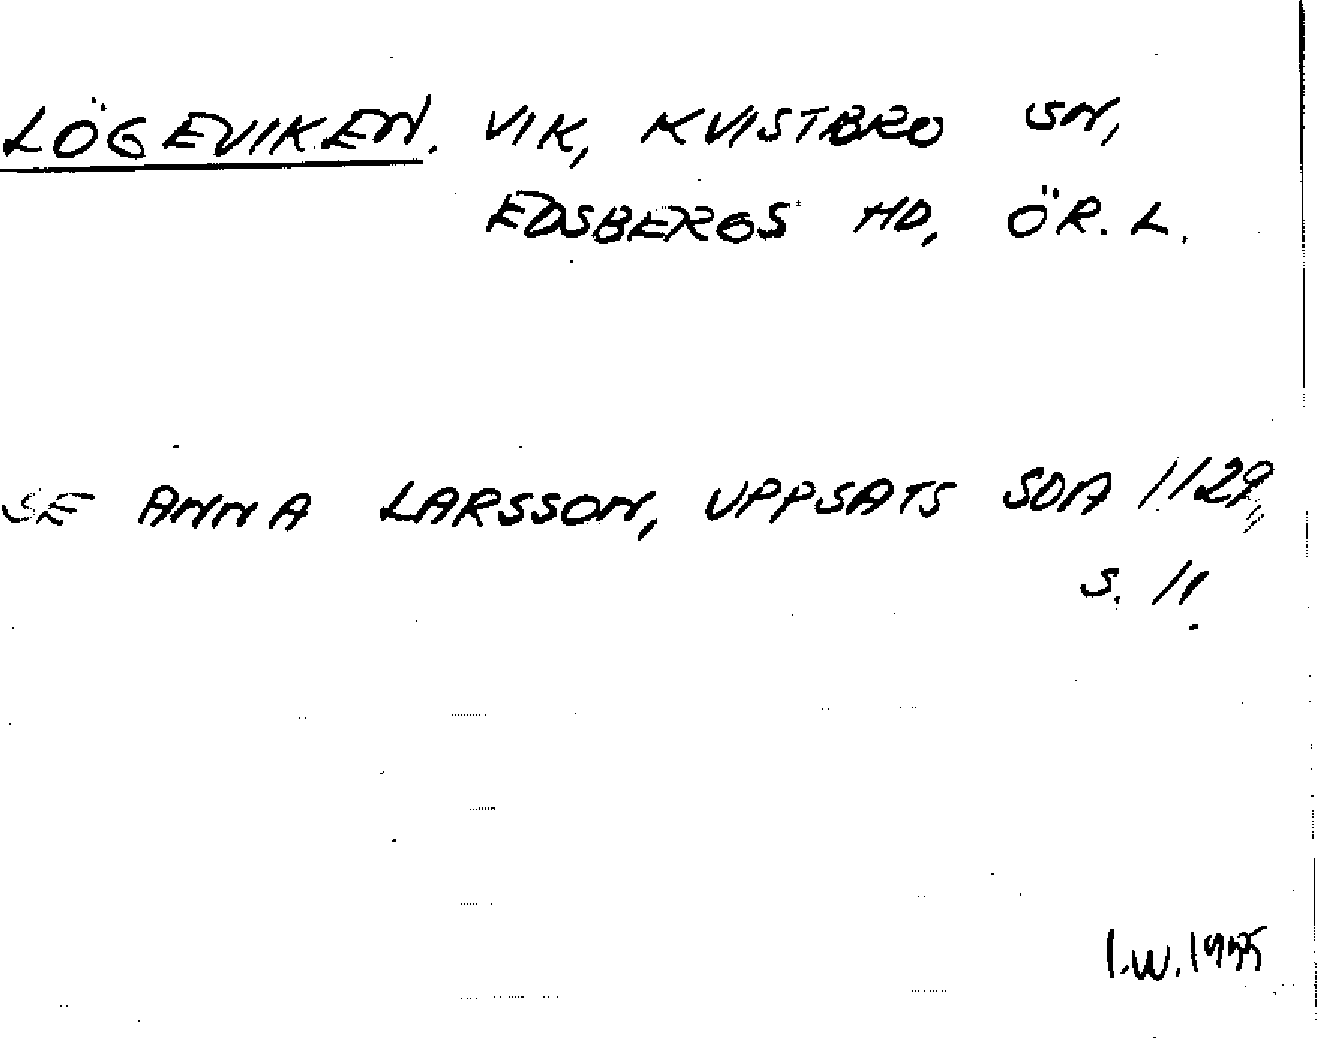 LÖGEVIKEN. VIK, KVISTBRO SN,
EDSBERGS HD, ÖR. L.
SE ANNA LARSSON, UPPSATS SOA 1129,
S. 11.
I.W.